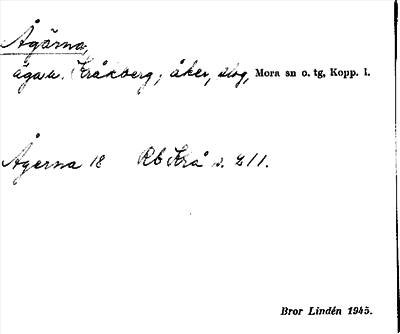 Ågärna,
äga u. Kråkberg; åker, slog, Mora sn o. tg, Kopp. l.
Ågerna 18 Rb Krå s. 211.
Bror Lindén 1945.